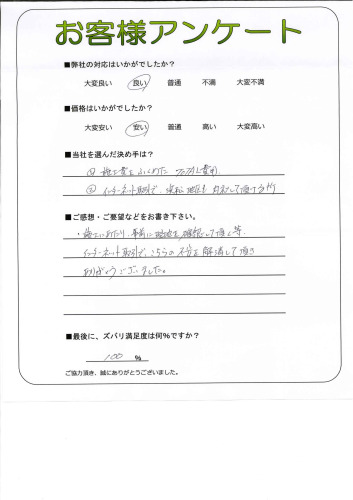 お客様アンケート
■弊社の対応はいかがでしたか？
大変良い 良い 普通 不満 大変不満
■価格はいかがでしたか？
大変安い 安い 普通 高い 大変高い
■当社を選んだ決め手は？
① 施工費をふくめた
② インターネット取引で、 して頂ける所
■ご感想・ご要望などをお書き下さい。
・施工にあたり、事前に現地を確認して頂く等、
インターネット取引で、こちらの不安を解消して頂き
ありがとうございました。
■最後に、ズバリ満足度は何％ですか？
100 ％
ご協力頂き、誠にありがとうございました。